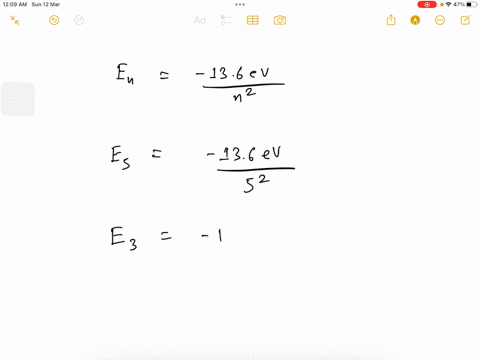 12:09 AM Sun 12 Mar
47%
Aa
En = -13.6 eV / n²
E5 = -13.6 eV / 5²
E3 = -1